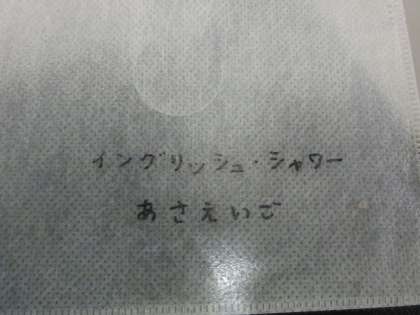 イングリッシュ・シャワー
あさえいご